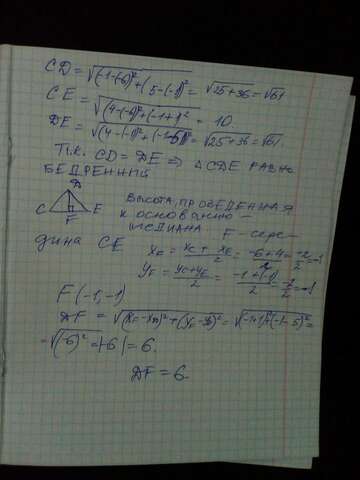 CD = √(-1-(-6))² + (5-(-1))² = √25+36 = √61
CE = √(4-(-6))² + (-1+1)² = 10
DE = √(4-(-1))² + (-1-5)² = √25+36 = √61.
Т.К. CD = DE ⇒ △CDE РАВНО
БЕДРЕННЫЙ
D
C F E
ВЫСОТА, ПРОВЕДЕННАЯ
К ОСНОВАНИЮ -
МЕДИАНА F - сере-
дина CE
X_F = (X_C + X_E)/2 = (-6+4)/2 = -2/2 = -1
Y_F = (Y_C + Y_E)/2 = (-1+(-1))/2 = -2/2 = -1
F(-1; -1)
DF = √(X_F - X_D)² + (Y_F - Y_D)² = √(-1+1)² + (-1-5)² =
= √(-6)² = |-6| = 6.
DF = 6